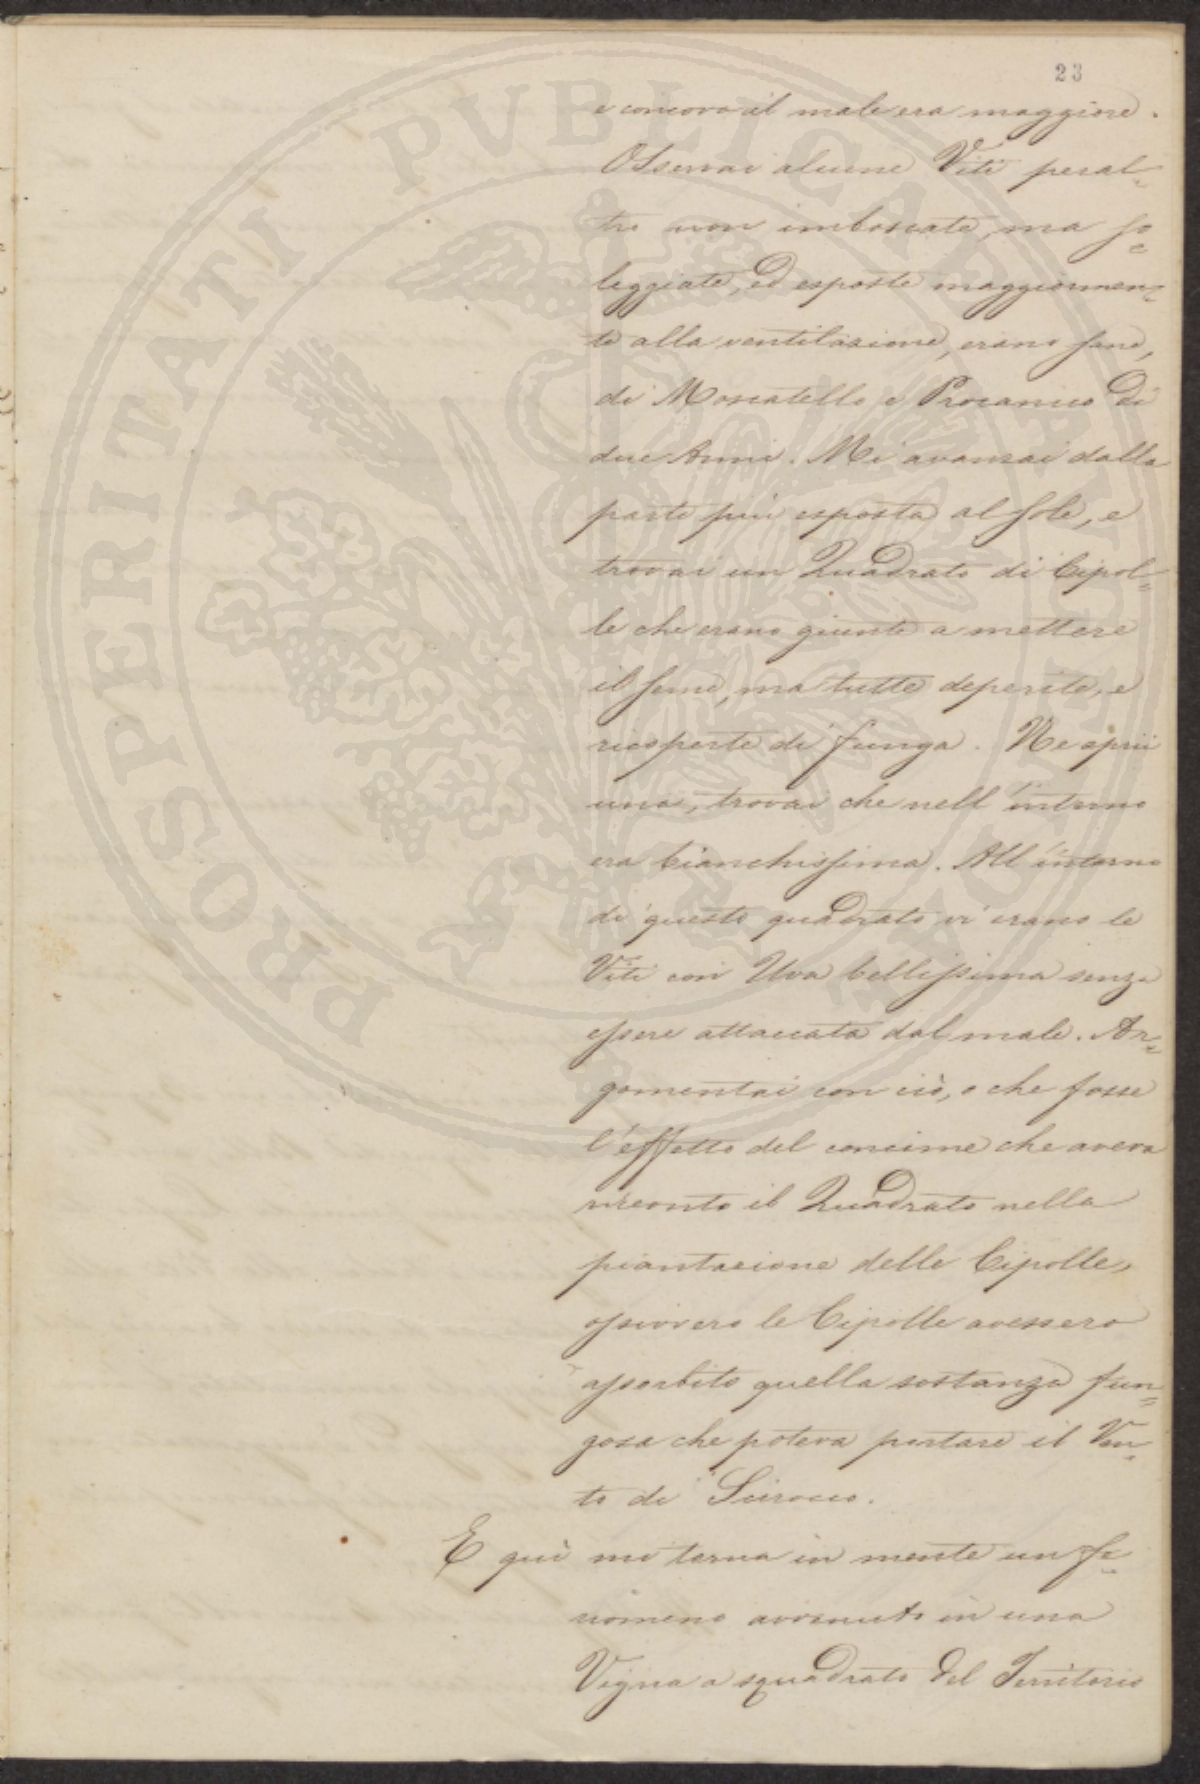 23
e concovo il male era maggiore.
Osservai alcune Viti peral=
tro non imboscate, ma so=
leggiate, ed esposte maggiormen=
te alla ventilazione, erano sane,
di Moscatello e Procanico di
due Anni. Mi avanzai dalla
parte più esposta al sole, e
trovai un Quadrato di Cipol=
le che erano giunte a mettere
il seme, ma tutte deperite, e
ricoperte di funga. Ne aprii
una, trovai che nell'interno
era bianchissima. All'intorno
di questo quadrato vi erano le
Viti con Uva bellissima senza
essere attaccata dal male. Ar=
gomentai con ciò, o che fosse
l'effetto del concime che aveva
ricevuto il Quadrato nella
piantazione delle Cipolle,
ossivvero le Cipolle avessero
assorbito quella sostanza fun=
gosa che poteva portare il Ven=
to di Scirocco.
E quì mi torna in mente un fe=
nomeno avvenuto in una
Vigna a squadrato del Territorio
PROSPERITATI PVBLICAE AVGENDAE